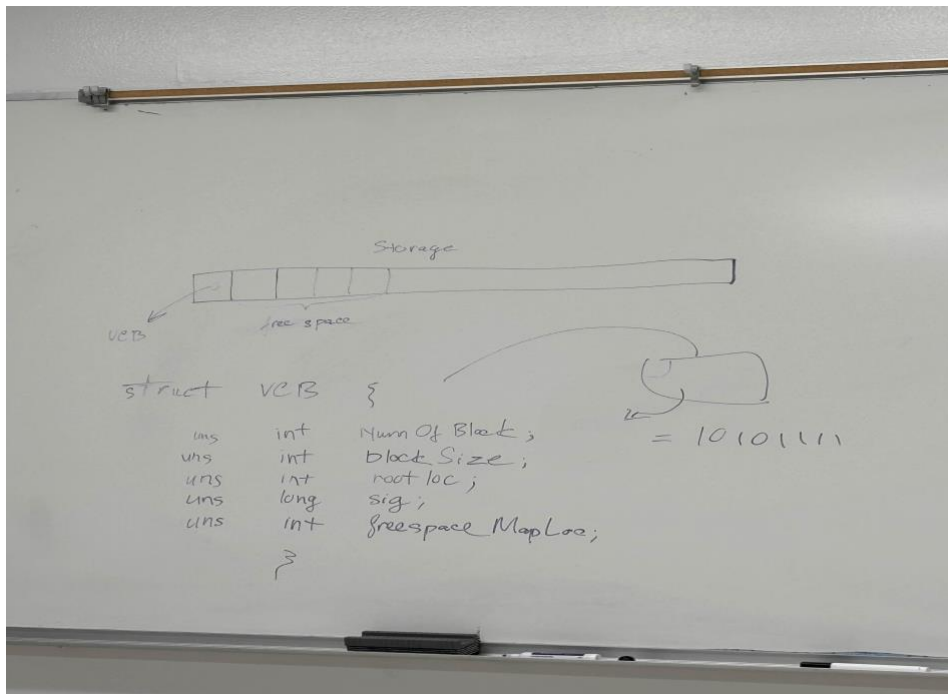 Storage
VCB
free space
struct VCB {
uns int Num Of Block;
uns int block Size;
uns int root loc;
uns long sig;
uns int freespace_MapLoc;
}
= 10101111